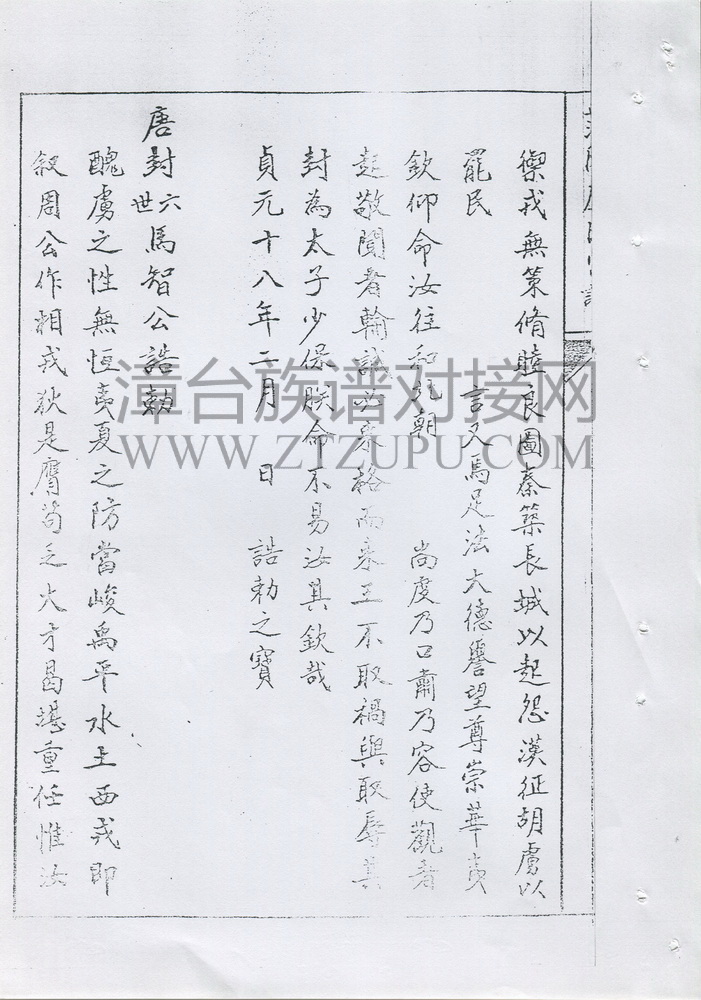 禦戎無策脩睦良圖秦築長城以起怨漢征胡虜以
罷民 言又馬足法大德譽望尊崇華夷
欽仰命汝往和 朝 尚度乃口肅乃容使觀者
起敬聞者輸誠必來格而來王不取禍與取辱其
封為太子少保朕命不易汝其欽哉
貞元十八年二月 日 誥勅之寶
唐封六世馬智公誥勅
醜虜之性無恒夷夏之防當峻禹平水土西戎即
叙周公作相戎狄是膺苟乏大才曷堪重任惟汝
漳台族谱对接网
WWW.ZTZUPU.COM